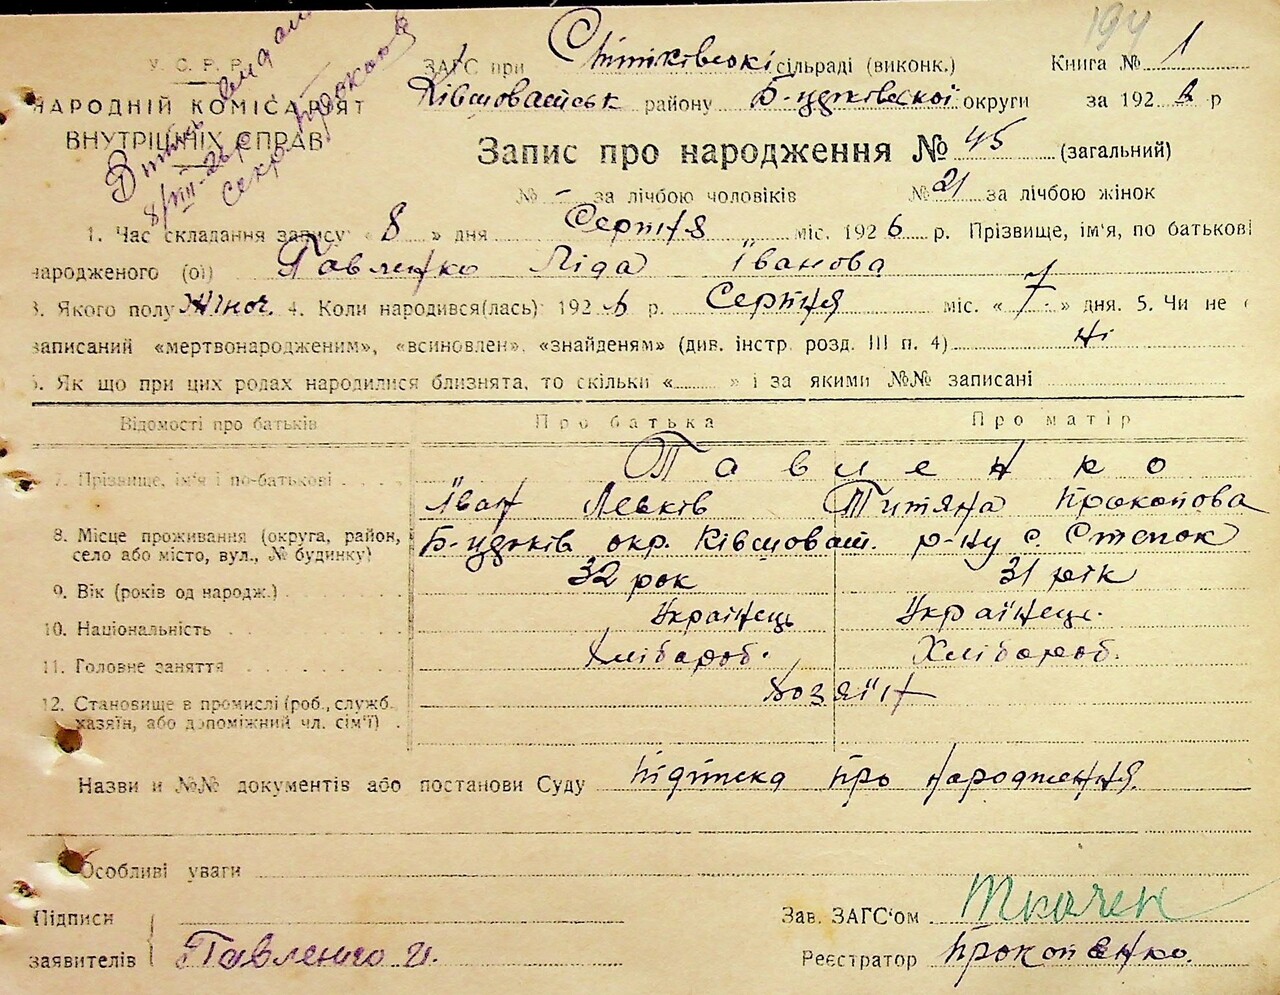 194
У. С. Р. Р.
НАРОДНІЙ КОМІСАРІЯТ
ВНУТРІШНІХ СПРАВ
Витись видан
8/VIII-26р
секр. Прокопе
ЗАГС при Степківської сільраді (виконк.) Книга № 1
Ківшоватськ району Б-церківської округи за 1926 р
Запис про народження № 45 (загальний)
№ - за лічбою чоловіків № 21 за лічбою жінок
1. Час складання запису « 8 » дня Серпня міс. 1926 р. Прізвище, ім'я, по батькові
народженого (ої) Павленко Ліда Іванова
3. Якого полу Жіноч. 4. Коли народився(лась) 1926 р. Серпня міс. « 7 » дня. 5. Чи не
записаний «мертвонародженим», «всиновлен», «знайденям» (див. інстр. розд. III п. 4) Ні
6. Як що при цих родах народилися близнята, то скільки « » і за якими №№ записані
Відомості про батьків Про батька Про матір
Павленко
7. Прізвище, ім'я і по-батькові Іван Левків Титяна Прокопова
8. Місце проживання (округа, район, село або місто, вул., № будинку) Б-церків окр. Ківшоват. р-ну с. Степок
9. Вік (років од народж.) 32 рок 31 рік
10. Національність Українець Українець.
11. Головне заняття Хлібороб. Хлібороб.
12. Становище в промислі (роб., служб. хазяїн, або допоміжний чл. сім'ї) Хозяїн
Назви и №№ документів або постанови Суду Підписка про народження.
Особливі уваги
Підписи Зав. ЗАГС'ом Ткачен
заявителів Павленко И. Реєстратор Прокопенко.